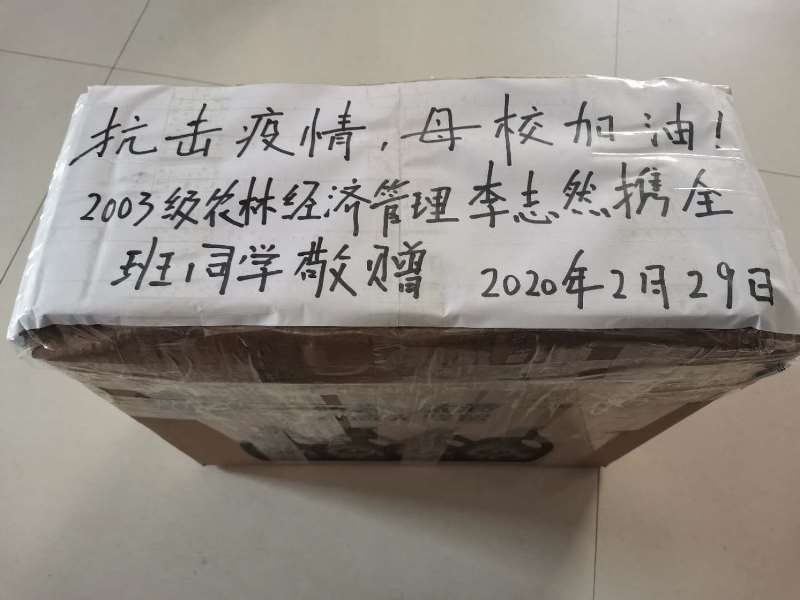 抗击疫情,母校加油!
2003级农林经济管理李志然携全
班同学敬赠 2020年2月29日